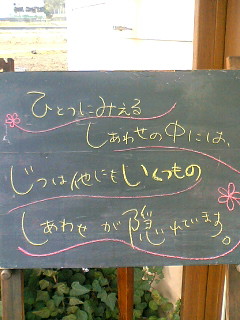 ひとつにみえる
しあわせの中には、
じつは他にもいくつもの
しあわせが隠れています。